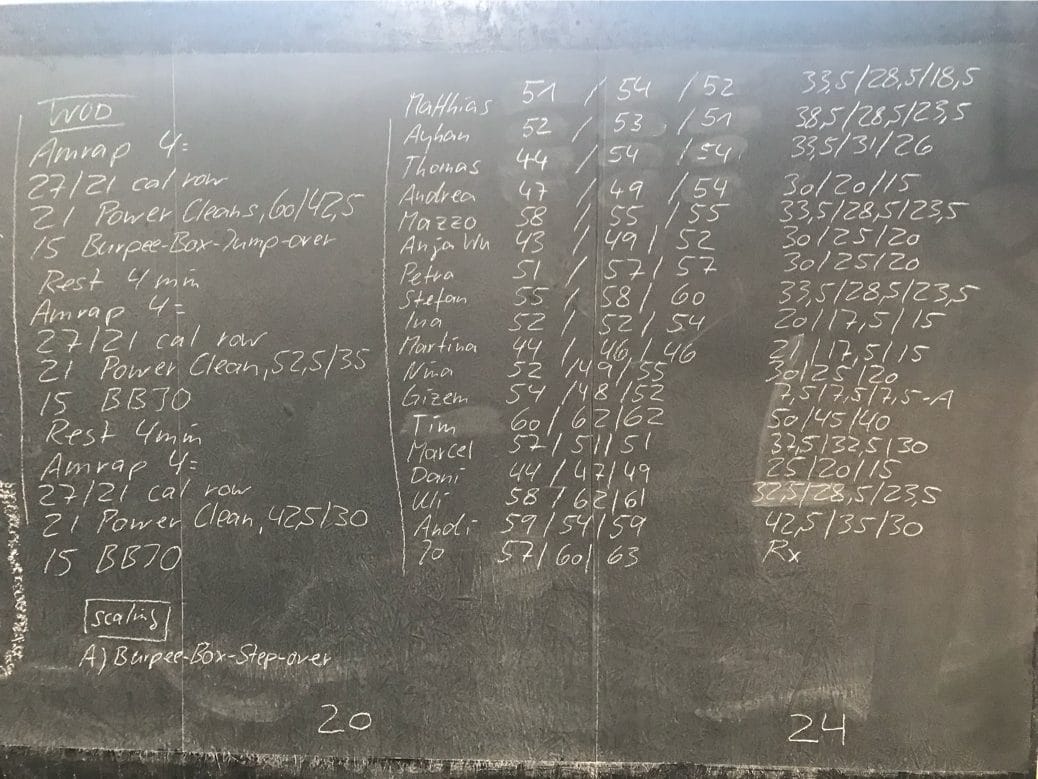 WOD
Amrap 4:
27/21 cal row
21 Power Cleans, 60/42,5
15 Burpee-Box-Jump-over
Rest 4 min
Amrap 4:
27/21 cal row
21 Power Clean, 52,5/35
15 BBJO
Rest 4min
Amrap 4:
27/21 cal row
21 Power Clean, 42,5/30
15 BBJO
scaling
A) Burpee-Box-Step-over
Matthias 51 / 54 / 52 33,5/28,5/18,5
Ayhan 52 / 53 / 51 38,5/28,5/23,5
Thomas 44 / 54 / 54 33,5/31/26
Andrea 47 / 49 / 54 30/20/15
Mazzo 58 / 55 / 55 33,5/28,5/23,5
Anja Wu 43 / 49 / 52 30/25/20
Petra 51 / 57 / 57 30/25/20
Stefan 55 / 58 / 60 33,5/28,5/23,5
Ina 52 / 52 / 54 20/17,5/15
Martina 44 / 46 / 46 21/17,5/15
Nina 52 / 49 / 55 30/25/20
Gizem 54 / 48 / 52 7,5/7,5/7,5-A
Tim 60 / 62 / 62 50/45/40
Marcel 57 / 51 / 51 37,5/32,5/30
Dani 44 / 47 / 49 25/20/15
Uli 58 / 62 / 61 32,5/28,5/23,5
Andi 59 / 54 / 59 42,5/35/30
Jo 57 / 60 / 63 Rx
20 24